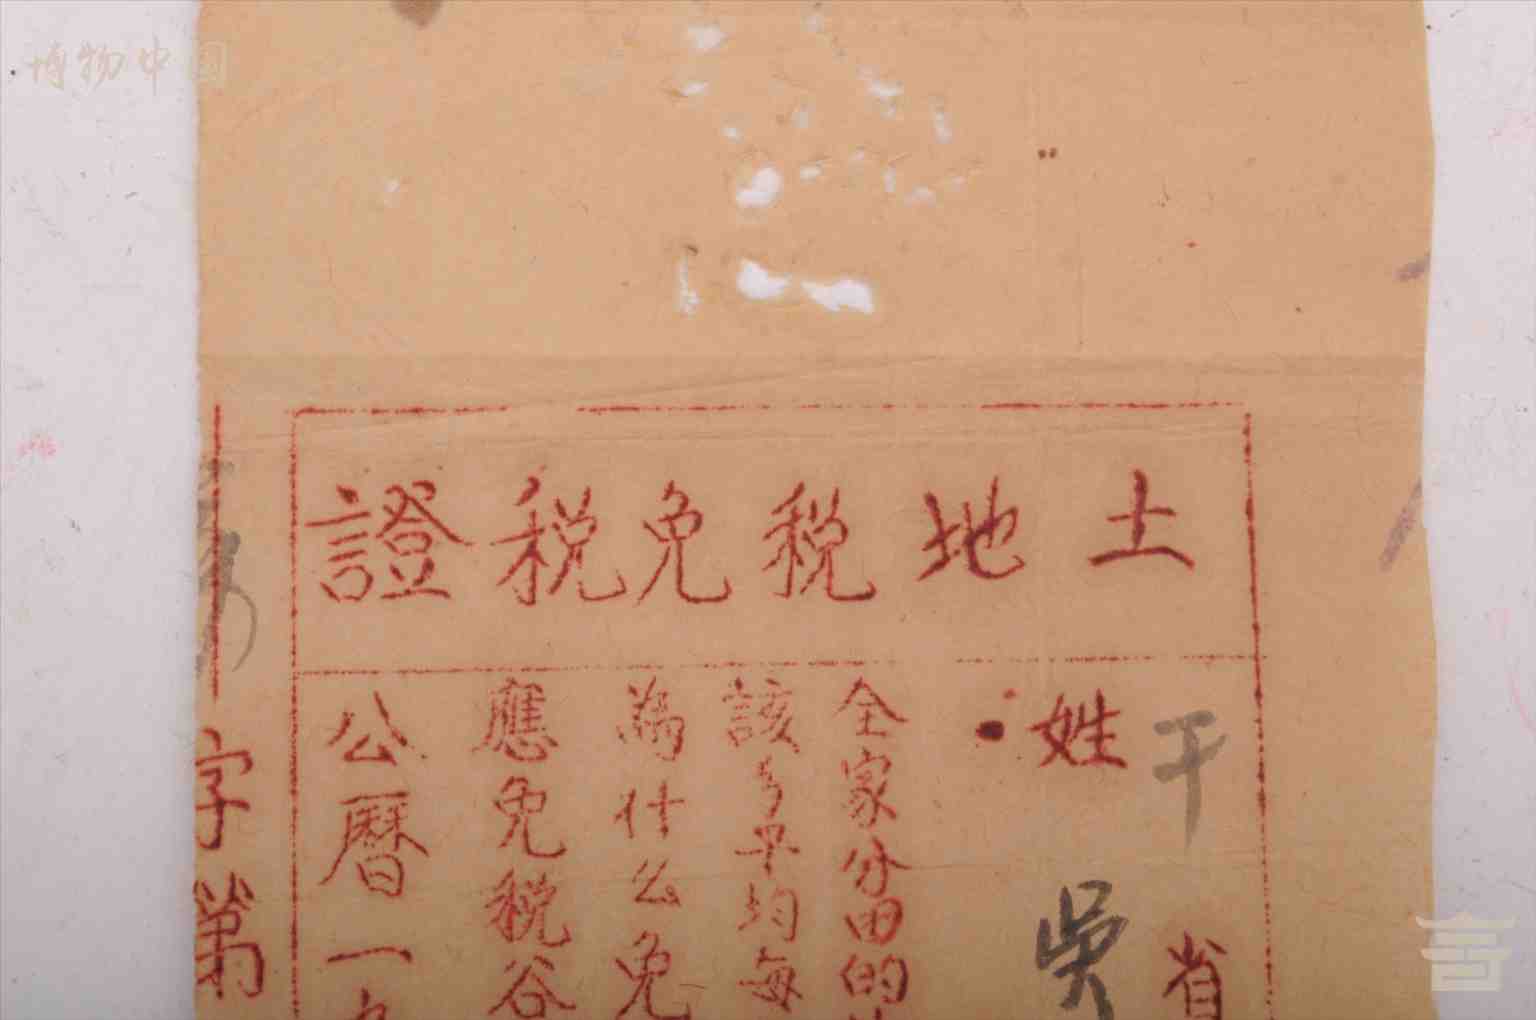 博物中國
土地税免税證
干省
姓吳
全家分田的
該乡平均每
為什么免
應免税谷
公曆一
字第